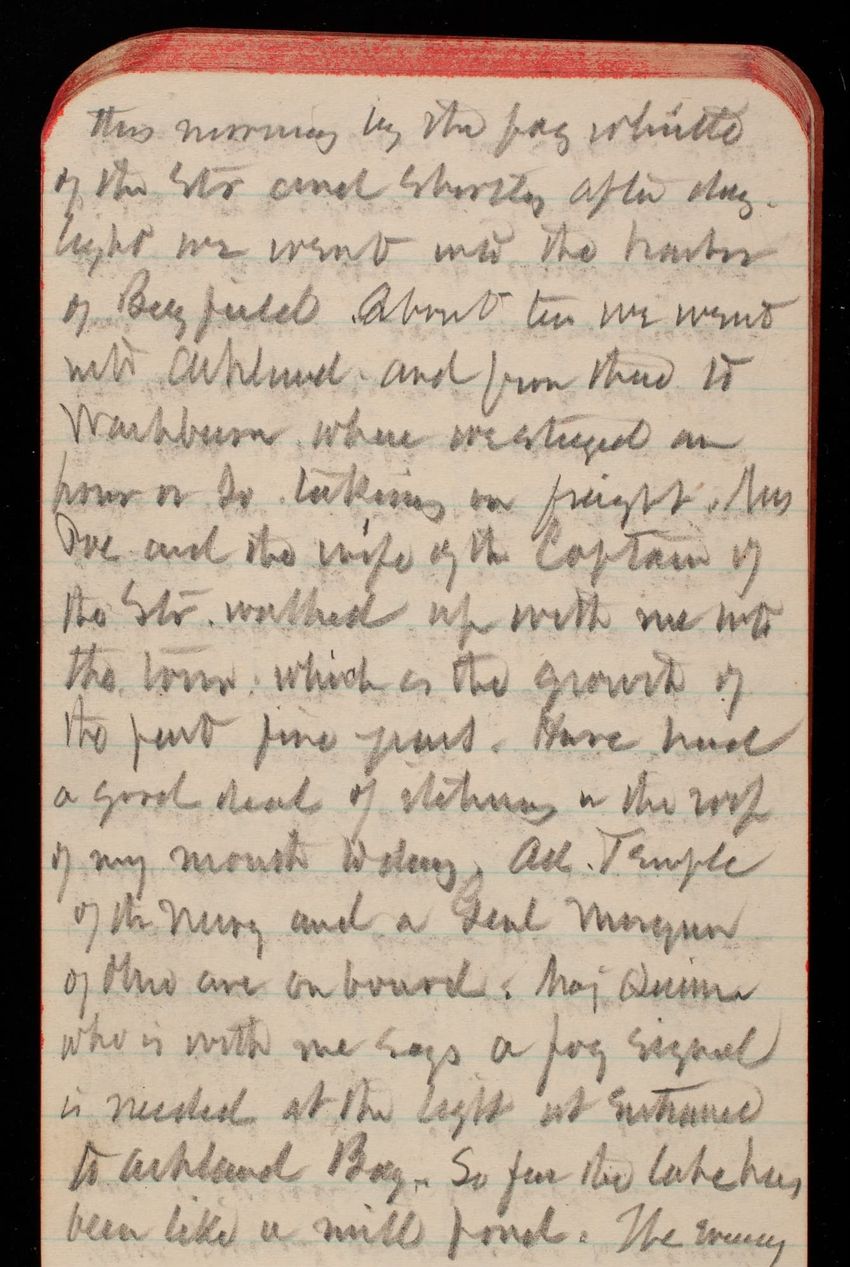 this morning by the fog whistle
of the Str and shortly after day-
light we went into the harbor
of Bayfield. About ten we went
into Ashland. and from there to
Washburn where we stayed an
hour or so taking on freight. Mrs
and the wife of the Captain of
the Str. walked up with me into
the town. which is the growth of
the past five years. Have had
a good deal of itching in the roof
of my mouth today. Ad. Temple
of the Navy and a Genl Morgan
of Ohio are on board. Maj Quinn
who is with me says a fog signal
is needed at the light at Entrance
to Ashland Bay. So far the lake has
been like a mill pond. The evening